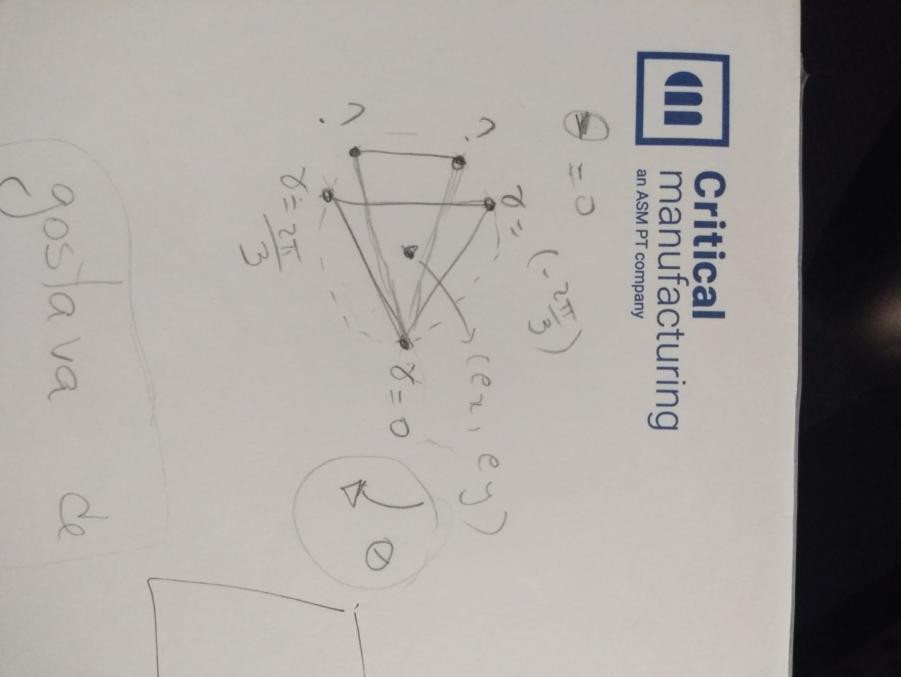 Critical
manufacturing
an ASM PT company
θ = 0
? ?
γ = 2π/3
γ = (-2π/3)
(ex, ey)
γ = 0
θ
gostava de